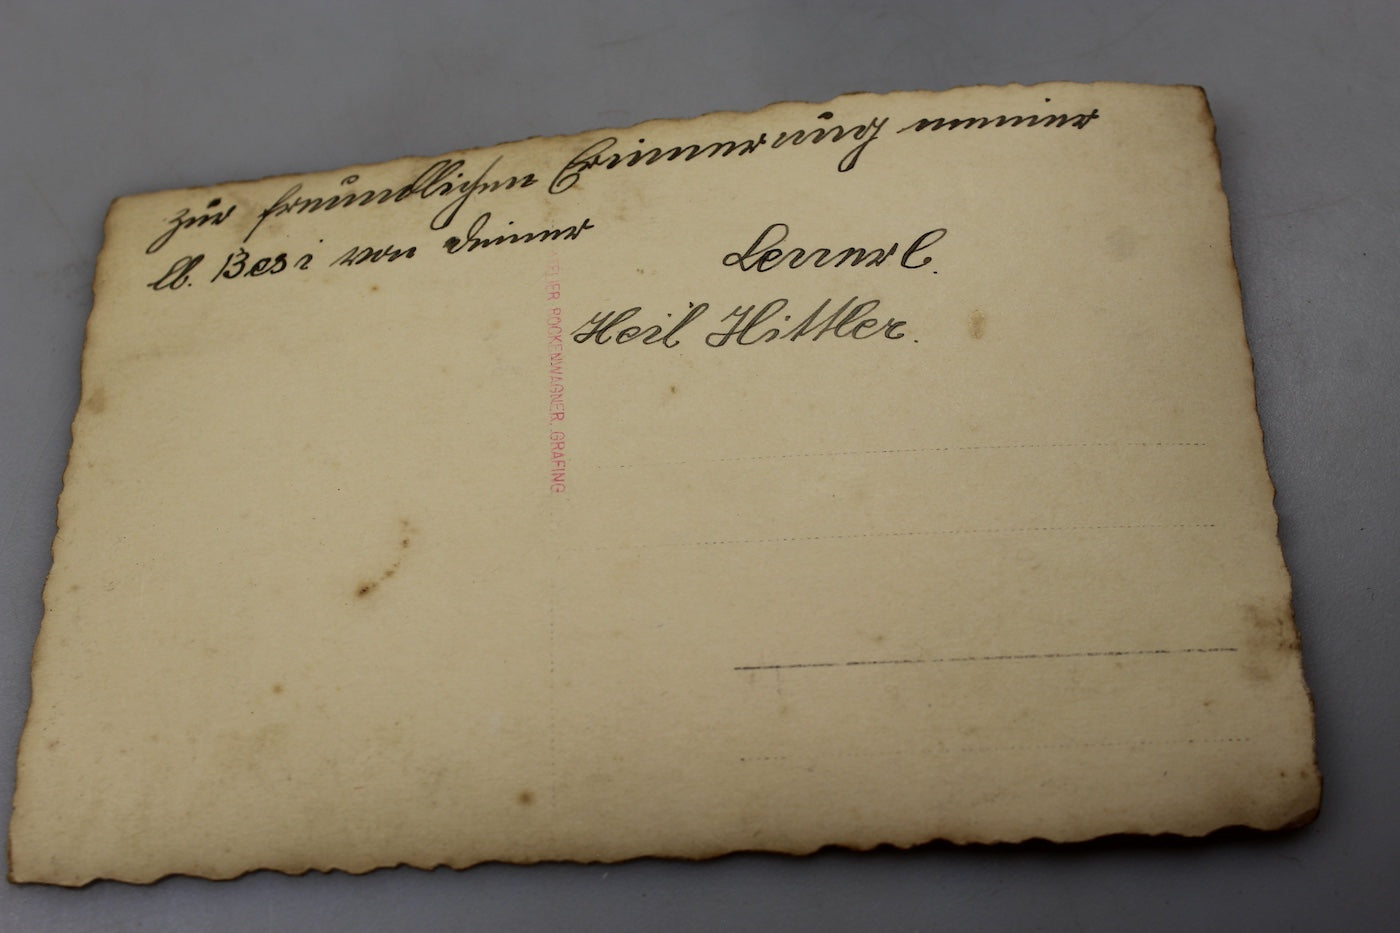 zur freundlichen Erinnerung meiner
lb. Besi von deiner
Lennerl.
Heil Hittler.
ELIER POCKENWAGNER, GRAFING